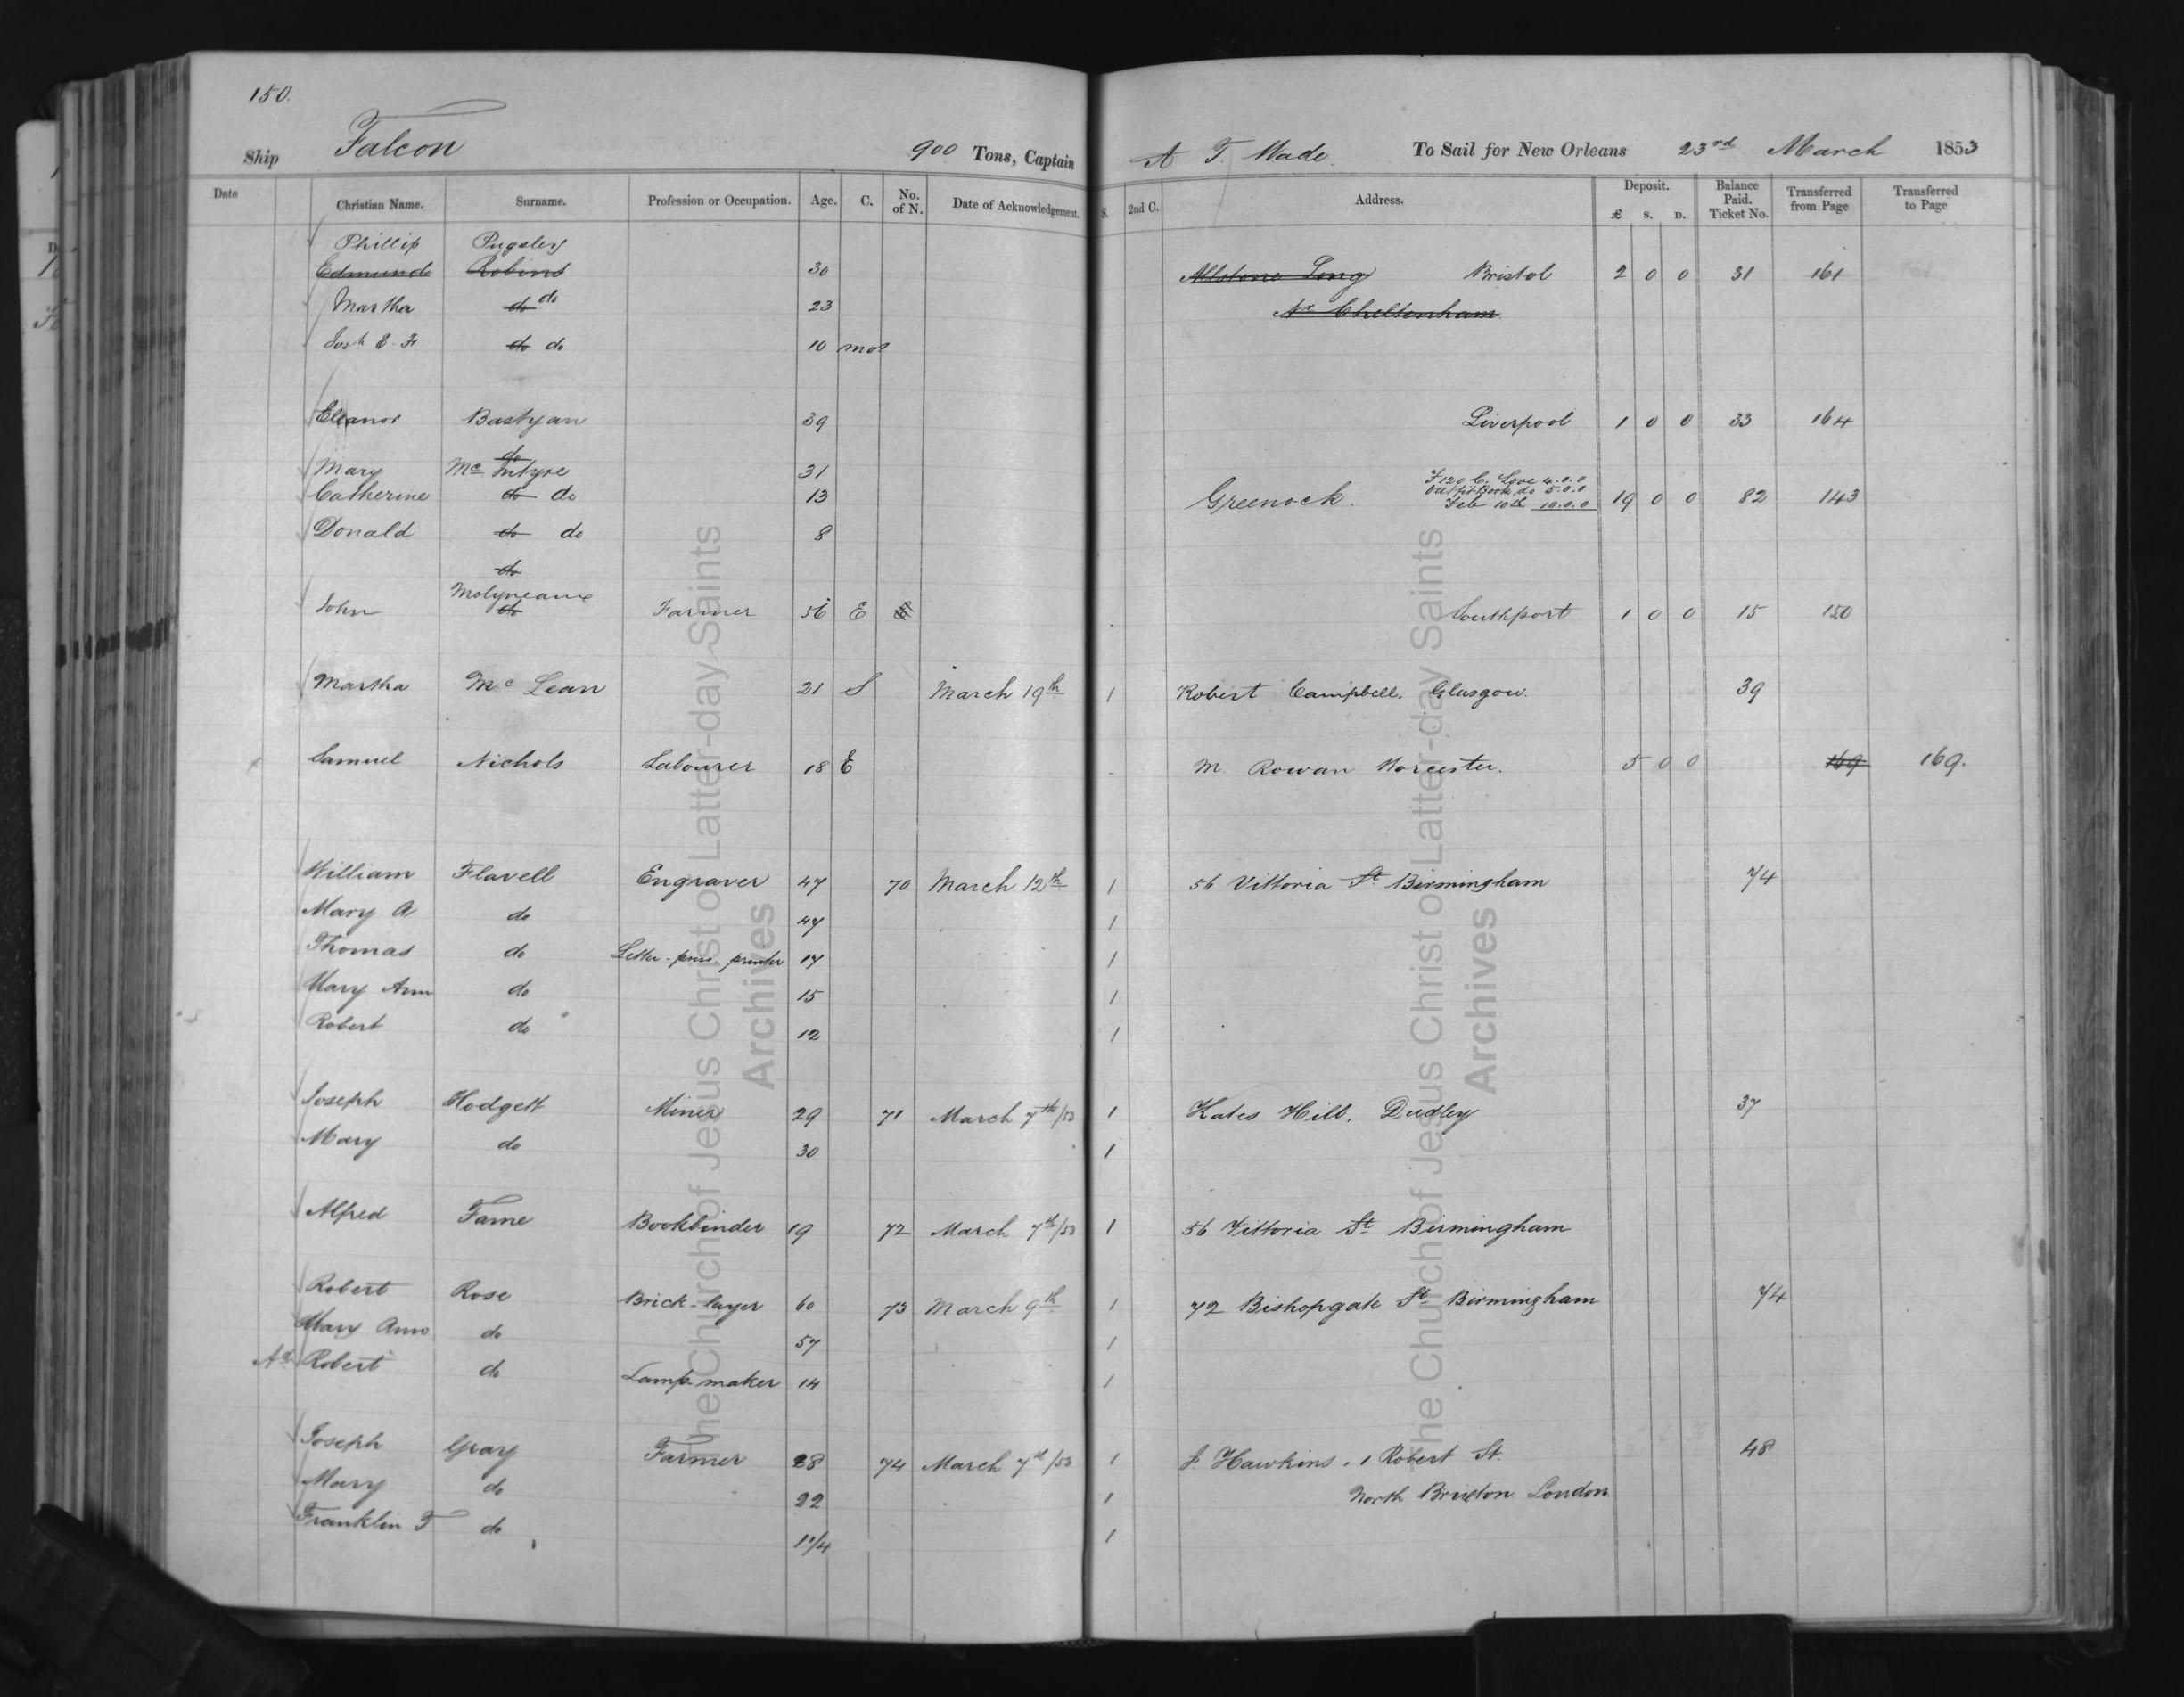 150.
Ship Falcon 900 Tons, Captain A T. Wade. To Sail for New Orleans 23rd March 1853
Date Christian Name. Surname. Profession or Occupation. Age. C. No. of N. Date of Acknowledgement. S. 2nd C. Address. Deposit. £ S. D. Balance Paid. Ticket No. Transferred from Page Transferred to Page
Phillip Pugsley
Edmund Robins 30 Allstone Long Bristol 2 0 0 31 161
Martha do do 23 Nr Cheltenham
Josh E. Fr do do 10 mos
Eleanor Bastyan 39 Liverpool 1 0 0 33 164
do
Mary Mc Intyre 31 F120 C. Love 4.0.0
Catherine do do 13 Greenock. Outfit Book do 5.0.0 19 0 0 82 143
Feb 10th 10.0.0
Donald do do 8
do
Molyneaux
John do Farmer 56 E Southport 1 0 0 15 150
Martha Mc Lean 21 S March 19th 1 Robert Campbell. Glasgow. 39
Samuel Nichols Labourer 18 E M. Rowan Worcester. 5 0 0 169 169.
William Flavell Engraver 47 70 March 12th 1 56 Vittoria St Birmingham 74
Mary A do 47 1
Thomas do Letter-press printer 17 1
Mary Ann do 15 1
Robert do 12 1
Joseph Hodgett Miner 29 71 March 7th/53 1 Kates Hill, Dudley 37
Mary do 30 1
Alfred Fame Bookbinder 19 72 March 7th/53 1 56 Vittoria St Birmingham
Robert Rose Brick-layer 60 73 March 9th 1 72 Bishopgate St Birmingham 74
Mary Ann do 57 1
Robert do Lamp-maker 14 1
Joseph Gray Farmer 28 74 March 7th/53 1 J. Hawkins, 1 Robert St. 48
Mary do 22 1 North Brixton London
Franklin T do 1 1/4 1
The Church of Jesus Christ of Latter-day Saints
Archives
The Church of Jesus Christ of Latter-day Saints
Archives